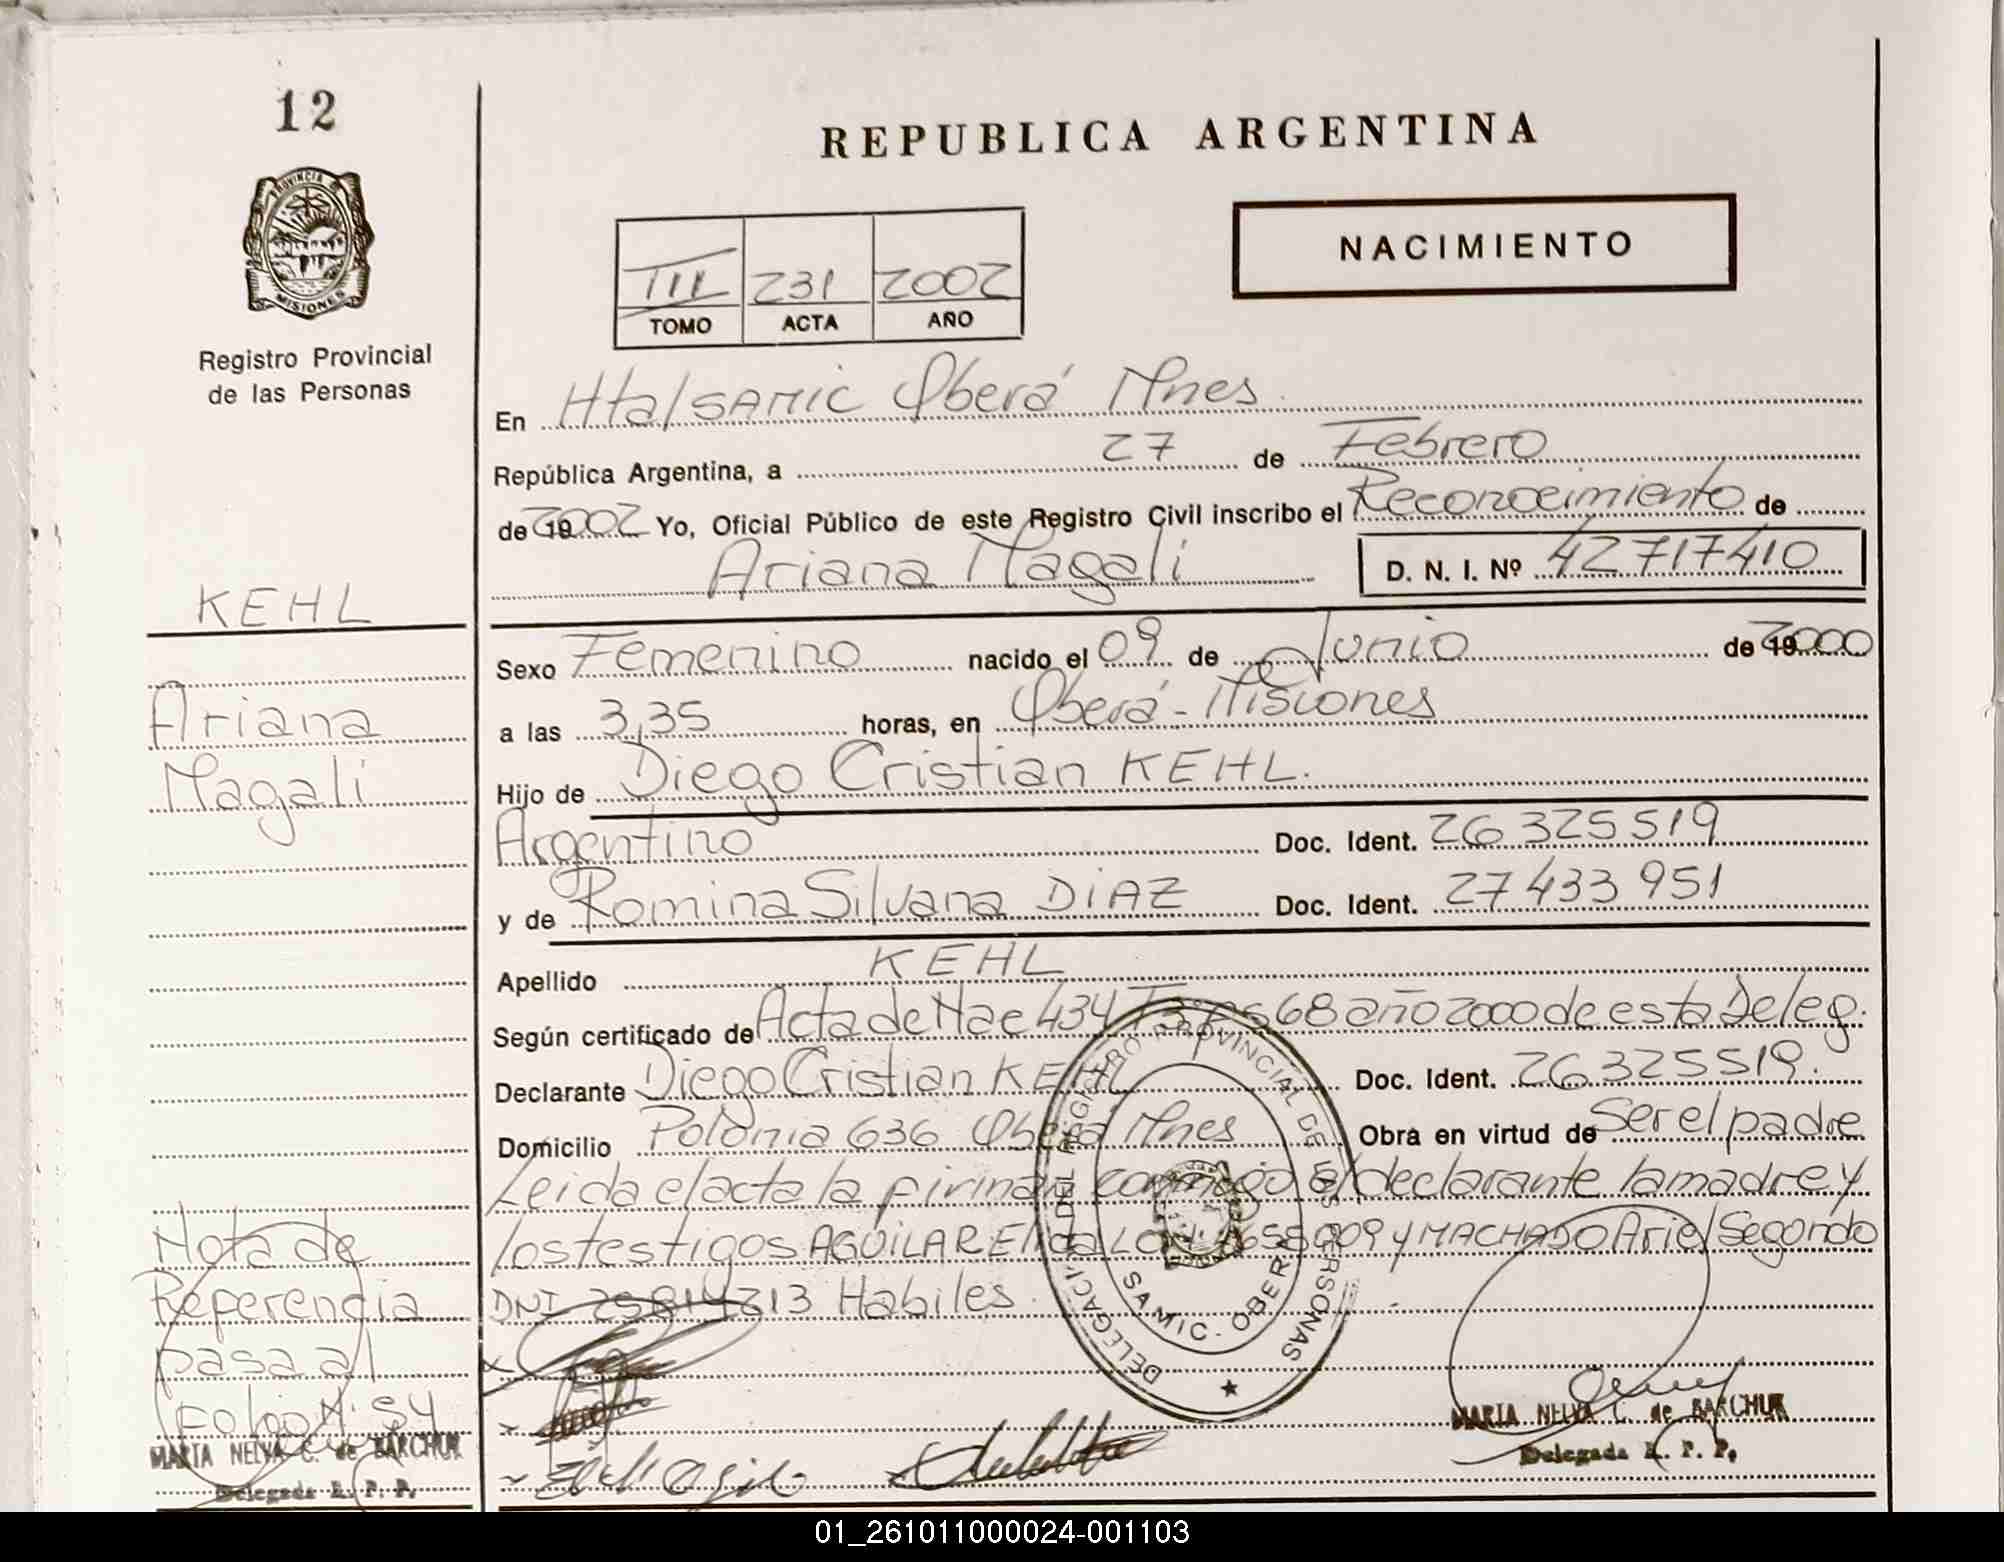 12
PROVINCIA DE
MISIONES
Registro Provincial
de las Personas
REPUBLICA ARGENTINA
NACIMIENTO
III 231 2002
TOMO ACTA AÑO
En Htal SAMIC Oberá Mnes.
República Argentina, a 27 de Febrero
de 2002 Yo, Oficial Público de este Registro Civil inscribo el Reconocimiento de
Ariana Magali D. N. I. Nº 42717410
Sexo Femenino nacido el 09 de Junio de 2000
a las 3,35 horas, en Oberá - Misiones
Hijo de Diego Cristian KEHL.
Argentino Doc. Ident. 26325519
y de Romina Silvana DIAZ Doc. Ident. 27433951
Apellido KEHL
Según certificado de Acta de Nac 434 T3 Fs 68 año 2000 de esta Deleg.
Declarante Diego Cristian KEHL Doc. Ident. 26325519.
Domicilio Polonia 636 Oberá Mnes Obra en virtud de Ser el padre
Leida el acta la firman conmigo el declarante la madre y
los testigos AGUILAR Elida y MACHADO Ariel Segondo
DNI Habiles.
DELEGACION DEL REGISTRO PROVINCIAL DE LAS PERSONAS
SAMIC. OBERA
MARIA NELVA C. de BARCHUK
Delegada R. P. P.
KEHL
Ariana
Magali
Nota de
Referencia
pasa al
Folio Nº 54
MARIA NELVA C. de BARCHUK
Delegada R. P. P.
01_261011000024-001103